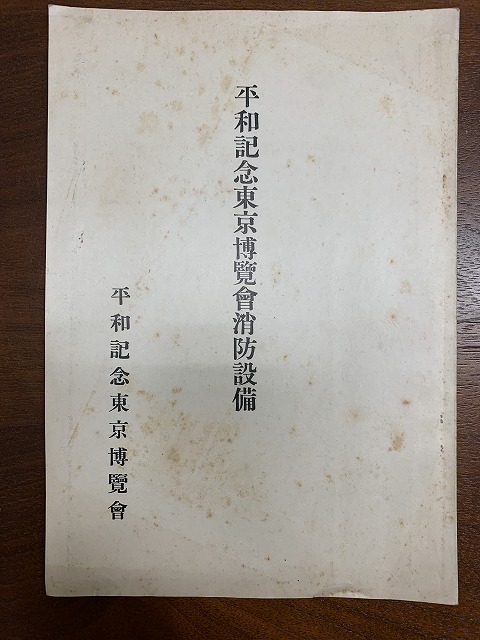 平和記念東京博覽會消防設備
平和記念東京博覽會